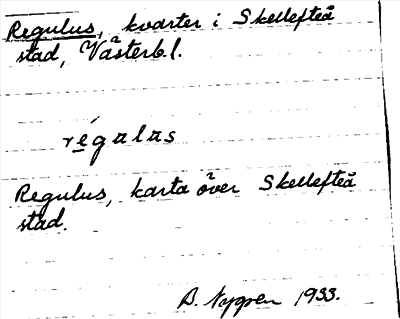 Regulus, kvarter i Skellefteå
stad, Västerb.l.
régulus
Regulus, karta över Skellefteå
stad.
B. Nygren 1933.